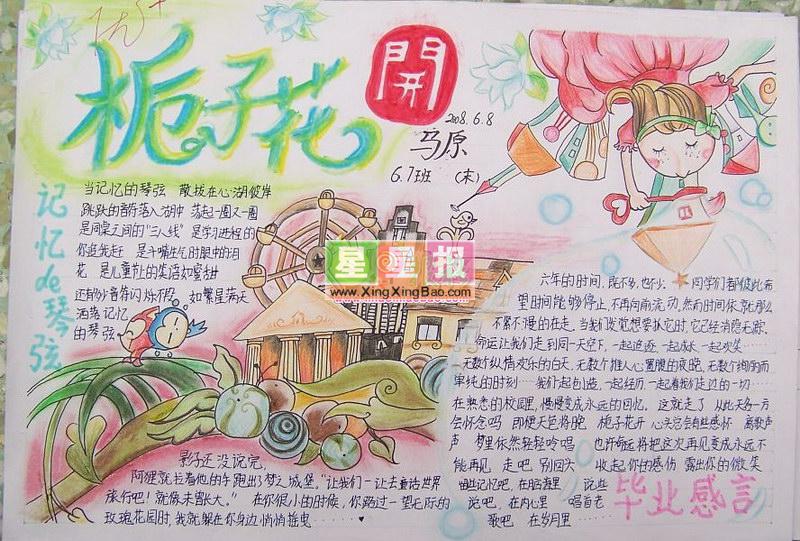 优+
栀子花
開
2008.6.8
马原
6.7班 (末)
记忆de琴弦
当记忆的琴弦 散拔在心湖彼岸
跳跃的音符落入湖中 荡起一圈又一圈
是同桌之间的"三八线" 是学习进程的
你追先赶 是干嘴生气时眼中的泪
花 是儿童礼的笑语如蜜甜
还有多少音符闪烁不停 如繁星满天
洒落记忆
的琴弦
星星报
www.XingXingBao.com
影子还没说完,
阿狸就拉着他的车跑出了梦之城堡,"让我们一让去童话世界
旅行吧!就像未曾长大。" 在你很小的时候,你跳过一望无际的
玫瑰花园时,我就躲在你身边悄悄摇曳……
六年的时间,既不多,也不少。同学们都彼此希
望时间能够停止,不再向前流动,然而时间依就那么
不紧不慢的在走,当我们发觉想拿状它时,它已经消隐无踪.
命运让我们走到同一天空下,一起追逐一起成长一起欢笑…
无数个纵情欢乐的白天,无数个推人心置腹的夜晚,无数个绚丽而
单纯的时刻……我们一起创造,一起经历,一起看我们走过的一切……
在熟悉的校园里,慢慢变成永远的回忆。这就走了 从此天各一方
会怀念吗 即便天色将晚 栀子花开 心头总会有些感怀 离歌声
声 梦里依然轻轻吟唱 也许命运将把这次再见变成永远不
能再见 走吧 别回头 收起你的感伤 露出你的微笑
把些记忆吧,在脑海里 说些
说吧,在内心里 唱首老
歌吧 在岁月里……
毕业感言